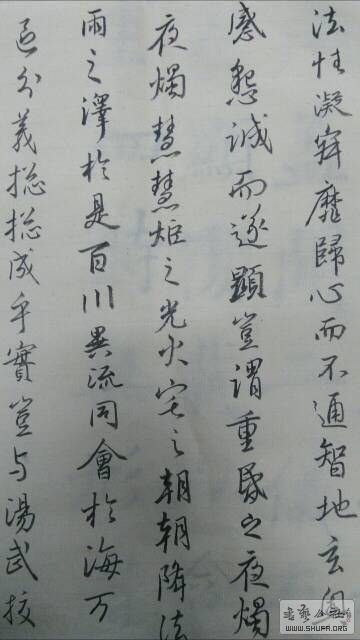 法性凝寂靡歸心而不通智地玄奧
感懇誠而遂顯豈謂重昏之夜燭
夜燭慧慧炬之光火宅之朝朝降法
雨之澤於是百川異流同會於海万
區分義揔揔成乎實豈与湯武挍
WWW.SHUFA.ORG